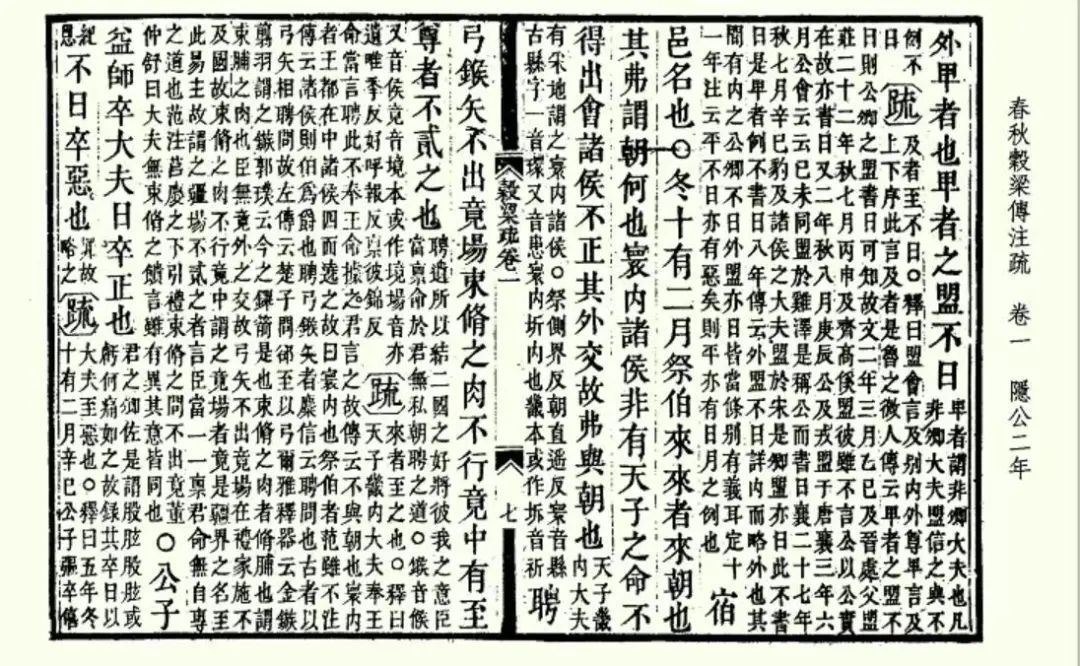 春秋穀梁傳注疏 卷一 隱公二年
外卑者也卑者之盟不日卑者謂非卿大夫也凡非卿大夫盟信之與不
例不日疏及者至不日○釋曰盟會言及別內外尊卑言及上下序此言及者是魯之微人傳云卑者之盟不
日則公卿之盟書日可知故文二年三月乙巳及晉處父盟莊二十二年秋七月丙申及齊高傒盟彼雖不言公以公實
在故亦書日又二年秋八月庚辰公及戎盟于唐襄三年六月公會云云己未同盟於雞澤是稱公而書日襄二十七年
秋七月辛巳豹及諸侯之大夫盟於宋是卿盟亦日此不書日是卑者例不書日八年傳云外盟不日詳內而略外也其
間有內之公卿不日外盟亦日皆當條別有義耳定十一年注云平不日亦有惡矣則平亦有日月之例也宿
邑名也○冬十有二月祭伯來來者來朝也
其弗謂朝何也寰內諸侯非有天子之命不
得出會諸侯不正其外交故弗與朝也天子畿內大夫
有采地謂之寰內諸侯○祭側界反朝直遥反寰音縣古縣字一音環又音患寰內圻內也畿本或作圻音祈聘
穀梁疏卷一 七
弓鍭矢不出竟場束脩之肉不行竟中有至
尊者不貳之也聘遺所以結二國之好將彼我之意臣當稟命於君無私朝聘之道○鍭音候
又音侯竟音境本或作境場音亦遺唯季反好呼報反稟彼錦反疏來者至之也○釋曰天子畿內大夫奉王
命當言聘此不奉王命據之君言之故傳云不與朝也寰內者王都在中諸侯四而遶之故曰寰內也祭伯者范雖不注
傳云諸侯則伯爲爵也聘弓鍭矢者麋信云聘問也古者以弓矢相聘問故左傳云楚子問郤至以弓爾雅釋器云金鏃
翦羽謂之鍭郭璞云今之錍箭是也束脩之肉者脩脯也謂束脯之肉也臣無竟外之交故弓矢不出竟場在禮家施不
及國故束脩之肉不行竟中謂之竟場者竟是疆界之名至此易主故謂之疆場不貳之者言臣當一一稟君命無自專
之道也范注莒慶之下引禮束脩之問不出竟董仲舒曰大夫無束脩之饋言雖有異其意皆同也○公子
益師卒大夫日卒正也君之卿佐是謂股肱股肱或虧何痛如之故錄其卒日以
紀恩不日卒惡也罪故略之疏大夫至惡也○釋曰五年冬十有二月辛巳公子彄卒僖